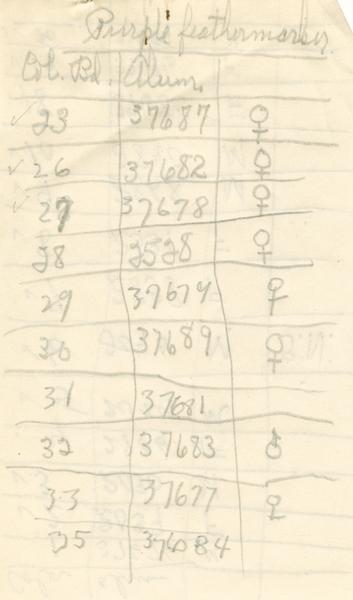 Purple feathermarker
Col. Bd. Alum.
✓ 23 37687 ♀
✓ 26 37682 ♀
✓ 27 37678 ♀
28 2528 ♀
29 37674 ♀
30 37689 ♀
31 37681
32 37683 ⚦
33 37677 ♀
35 37684